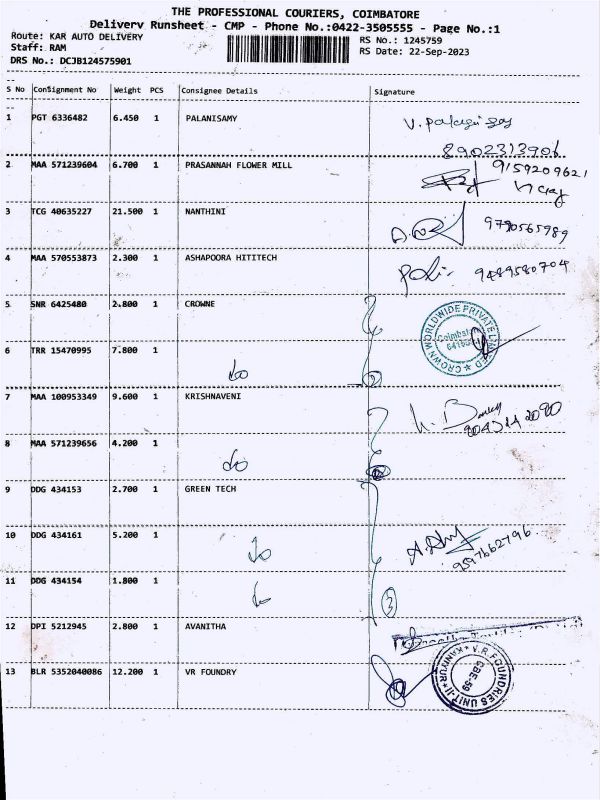 THE PROFESSIONAL COURIERS, COIMBATORE
Delivery Runsheet - CMP - Phone No.:0422-3505555 - Page No.:1
Route: KAR AUTO DELIVERY
RS No.: 1245759
Staff: RAM
RS Date: 22-Sep-2023
DRS No.: DCJB124575901
S No Consignment No Weight PCS Consignee Details Signature
1 PGT 6336482 6.450 1 PALANISAMY
8902313906
2 MAA 571239604 6.700 1 PRASANNAH FLOWER MILL 9159209621
3 TCG 40635227 21.500 1 NANTHINI 9790565989
4 MAA 570553873 2.300 1 ASHAPOORA HITITECH 9489580704
5 SNR 6425480 2.800 1 CROWNE
CROWN WORLDWIDE PRIVATE LIMITED
6 TRR 15470995 7.800 1
do 2
7 MAA 100953349 9.600 1 KRISHNAVENI
8 MAA 571239656 4.200 1
do
9 DDG 434153 2.700 1 GREEN TECH
10 DDG 434161 5.200 1
9597662796
11 DDG 434154 1.800 1
3
12 DPI 5212945 2.800 1 AVANITHA
13 BLR 5352040086 12.200 1 VR FOUNDRY
V.R.FOUNDRIES UNIT-II KANIYUR
CBE-59